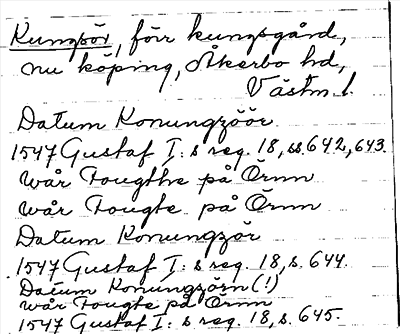 Kungsör, förr kungsgård,
nu köping, Åkerbo hd,
Västm. l.
Datum Konungzöör
1547 Gustaf I: s reg. 18, ss. 642, 643.
wår Fougthe på Örnn
wår Fougte på Örnn
Datum Konungzör
1547 Gustaf I: s reg. 18, s. 644.
Datum Konungzörn (!)
wår Fougte på Örnn
1547 Gustaf I: s reg. 18, s. 645.